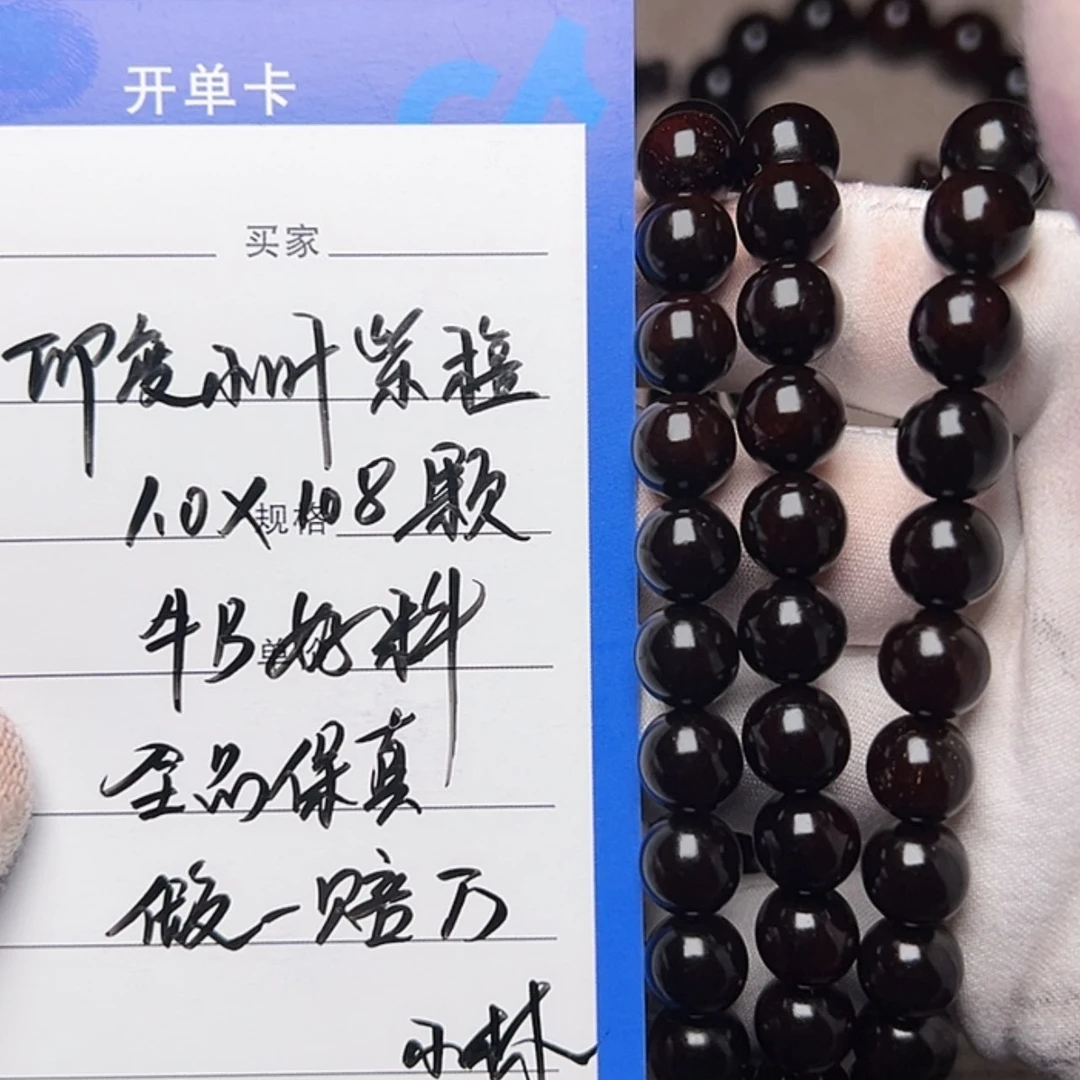 开单卡
买家
印度小叶紫檀
1.0X108颗
规格
牛B好料
单价
全品保真
做一赔万
小林